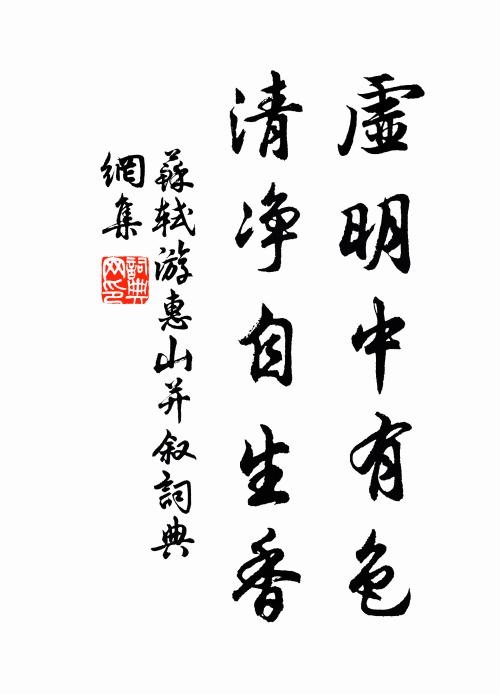 虚明中有色
清净自生香
蘇軾游惠山并叙詞典
網集
詞典網印